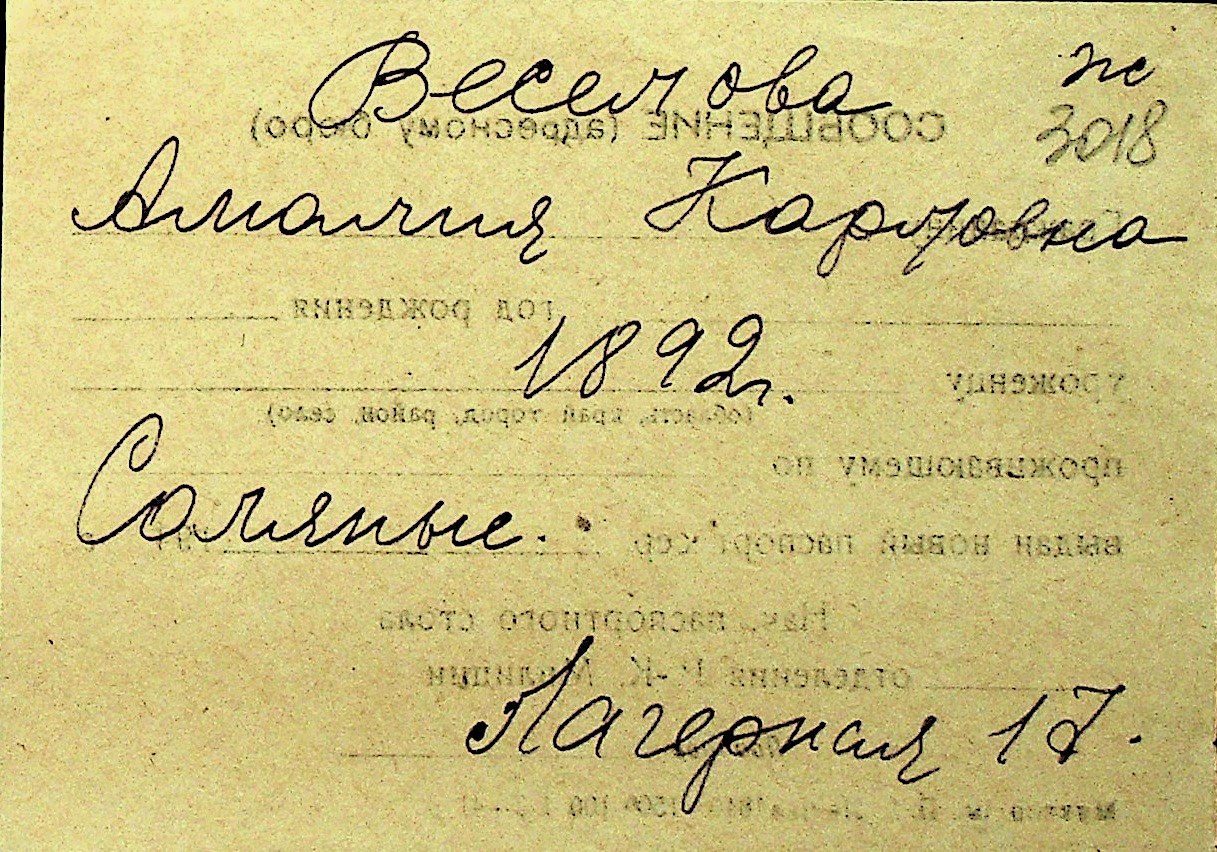 Веселова ж
3018
СООБЩЕНИЕ (адресному бюро)
Амалия Карловна
год рождения
1892 г.
уроженцу
(область, край, город, район, село)
проживающему по
Соляные.
выдан новый паспорт сер.
Нач. паспортного стола
отделения Р.-К. Милиции
Лагерная 17.